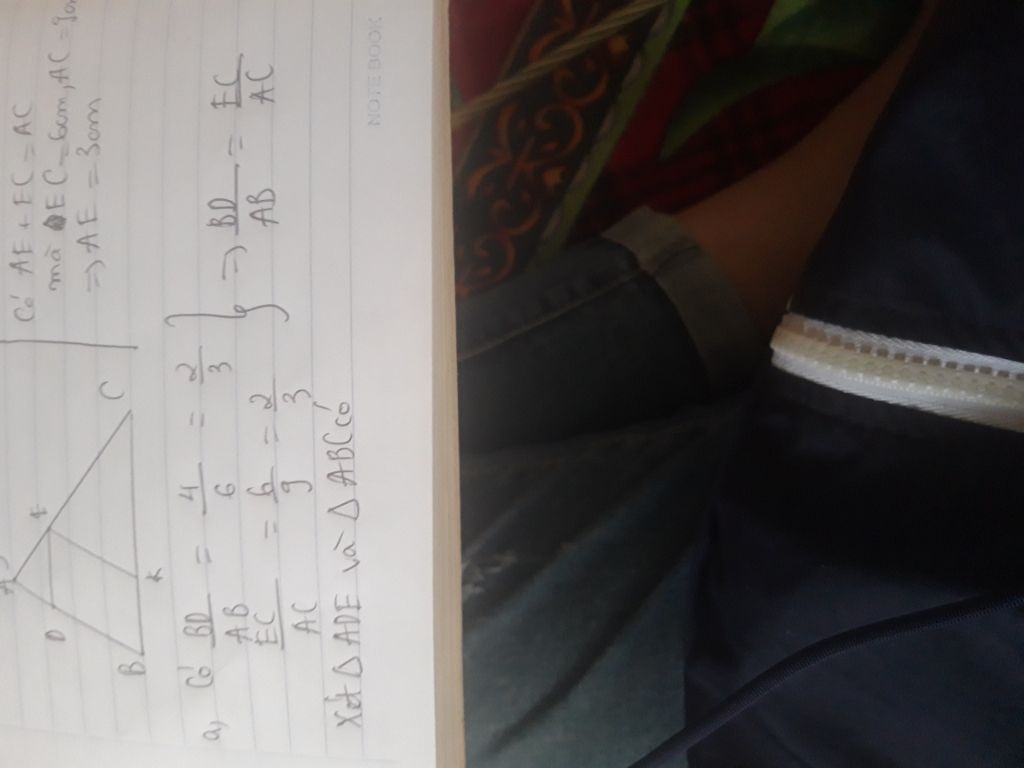 Có AE + EC = AC
mà EC = 6cm, AC = 9cm
=> AE = 3cm
A
D E
B K C
a, Có BD/AB = 4/6 = 2/3
EC/AC = 6/9 = 2/3 } => BD/AB = EC/AC
Xét Δ ADE và Δ ABC có
NOTEBOOK